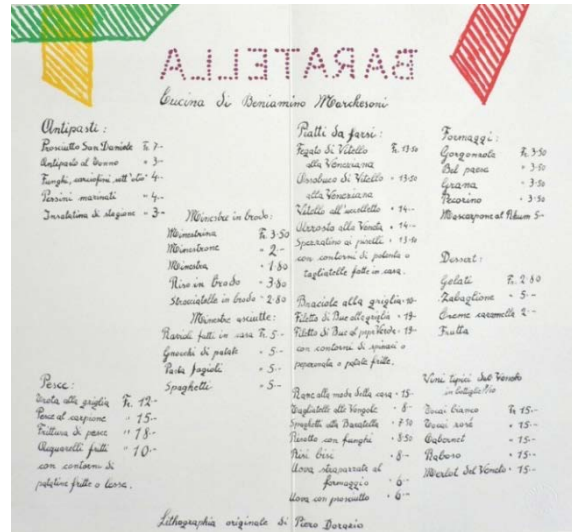 BARATELLA
Cucina di Beniamino Marchesoni
Antipasti:
Prosciutto San Daniele Fr. 7.-
Antipasto al Tonno " 3-
Funghi, carciofini, sott'olio " 4.-
Persini marinati " 4.-
Insalatina di stagione " 3-
Minestre in brodo:
Minestrina Fr. 3.50
Minestrone " 2.-
Minestra " 1.80
Riso in brodo " 3.80
Stracciatelle in brodo " 2.80
Minestre asciutte:
Ravioli fatti in casa Fr. 5.-
Gnocchi di patate " 5.-
Pasta fagioli " 5.-
Spaghetti " 5.-
Pesce:
Trota alla griglia Fr. 12-
Pesce al carpione " 15.-
Frittura di pesce " 18.-
Acquarelli fritti " 10.-
con contorni di
patatine fritte o lessa.
Piatti da farsi:
Fegato di Vitello Fr. 13.50
alla Veneziana
Ossobuco di Vitello " 13.50
alla Veneziana
Vitello all'uccelletto " 14.-
Arrosto alla Veneta " 14.-
Spezzatino ai piselli " 13.50
con contorni di polenta o
tagliatelle fatte in casa.
Braciole alla griglia
Filetto di Bue alla griglia " 19-
Filetto di Bue al pepe Verde " 19-
con contorni di spinaci o
peperonata o patate fritte.
alla moda della casa " 15-
Tagliatelle alle Vongole " 8-
Spaghetti alla Baratella " 7.50
Risotto con funghi " 8.50
Risi bisi " 8.-
Uova strapazzate al
formaggio " 6-
Uova con prosciutto " 6-
Formaggi:
Gorgonzola Fr. 3.50
Bel paese " 3.50
Grana " 3.50
Pecorino " 3.50
Mascarpone al Rhum 5-
Dessert:
Gelati Fr. 2.80
Zabaglione " 5.-
Creme caramelle 2.-
Frutta
Vini tipici del Veneto
in bottiglie
bianco Fr. 15.-
rosé " 15.-
Cabernet " 15.-
Raboso " 15.-
Merlot del Veneto " 15.-
Lithographia originale di Piero Dorazio